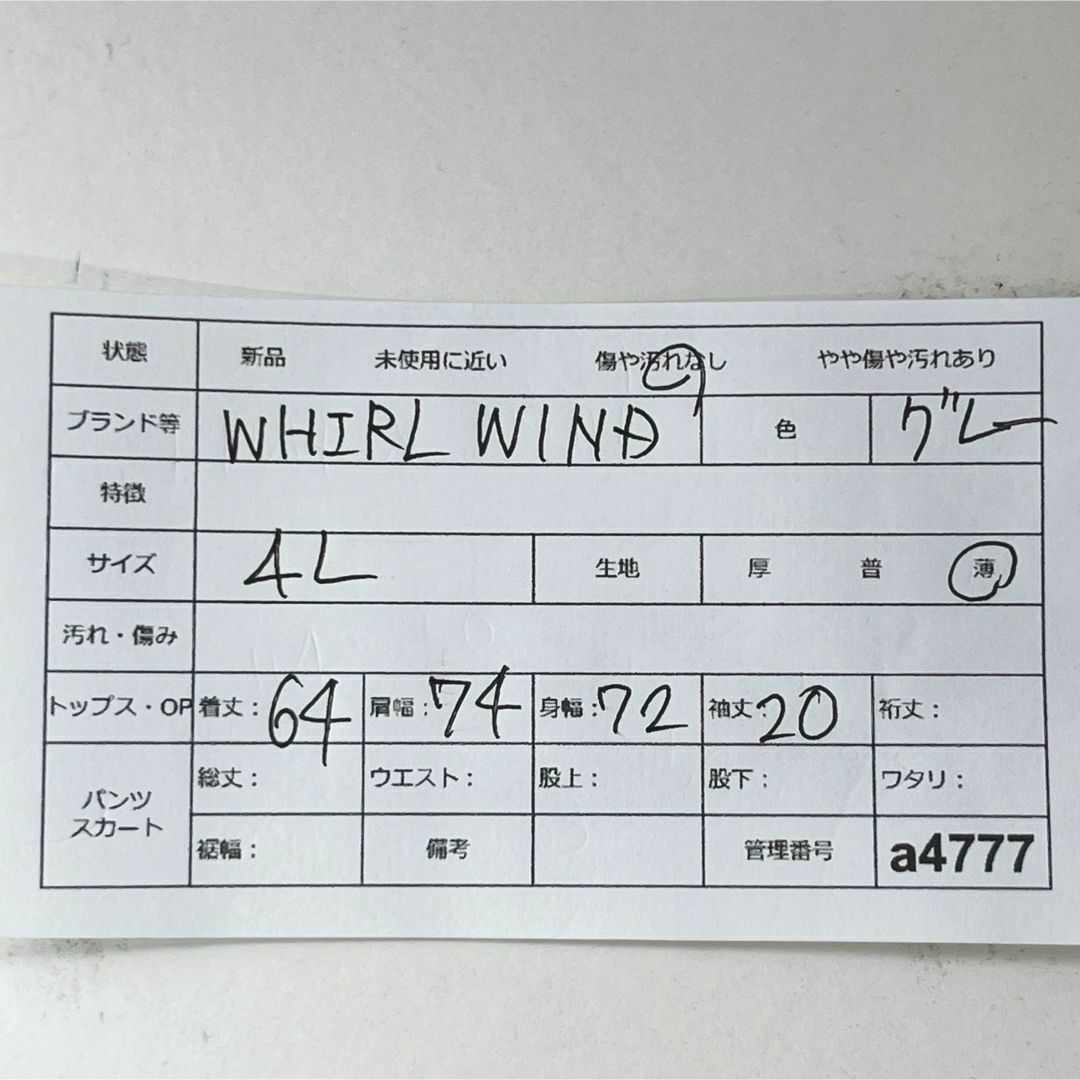 状態 新品 未使用に近い 傷や汚れなし やや傷や汚れあり
ブランド等 WHIRL WIND 色 グレー
特徴
サイズ 4L 生地 厚 普 薄
汚れ・傷み
トップス・OP 着丈: 64 肩幅: 74 身幅: 72 袖丈: 20 裄丈:
パンツ
スカート
総丈: ウエスト: 股上: 股下: ワタリ:
裾幅: 備考 管理番号 a4777